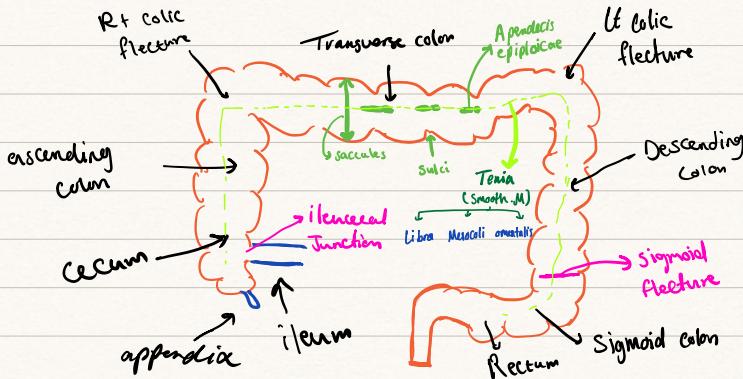 Rt colic
flecture
Transverse colon
Apendecis
epiploicae
Lt colic
flecture
ascending
colon
saccules
sulci
Descending
colon
Tenia
(smooth.M)
Libra Mesocoli omentalis
ilencecal
Junction
cecum
sigmoid
flecture
appendix
ileum
Rectum
Sigmoid colon